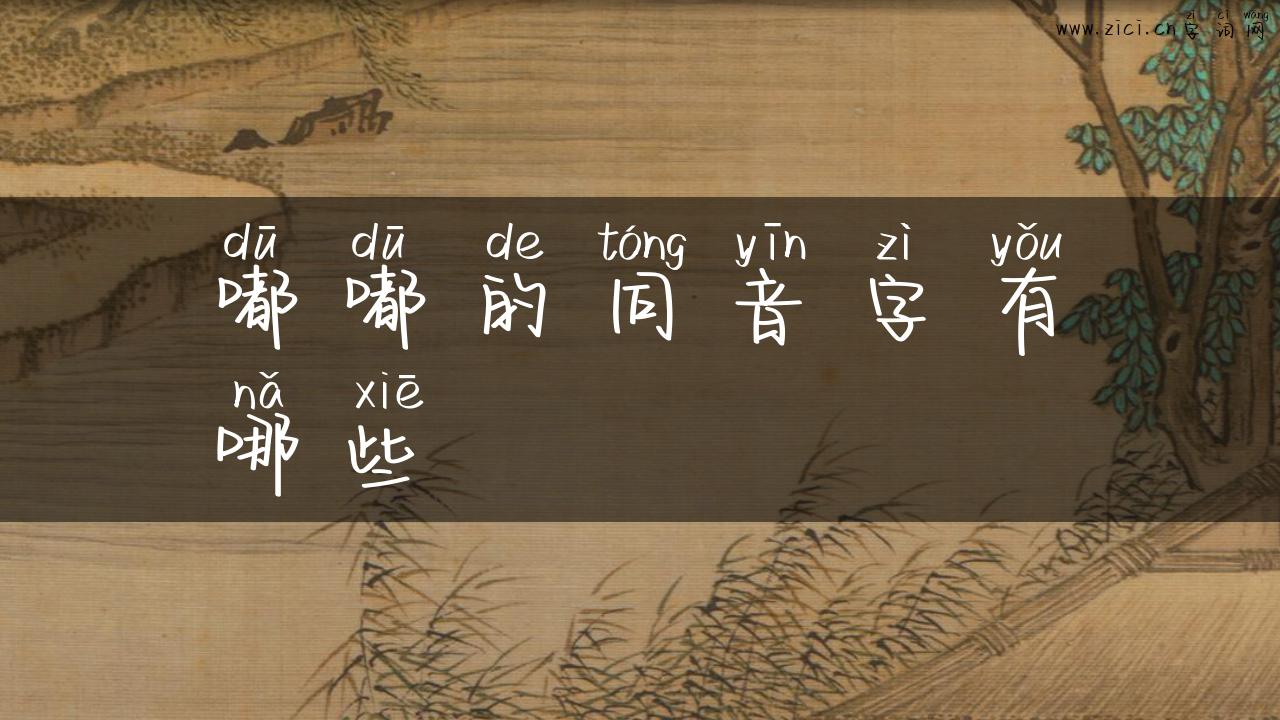 zì cí wǎng
www.zici.cn字词网
dū dū de tóng yīn zì yǒu
嘟嘟的同音字有
nǎ xiē
哪些